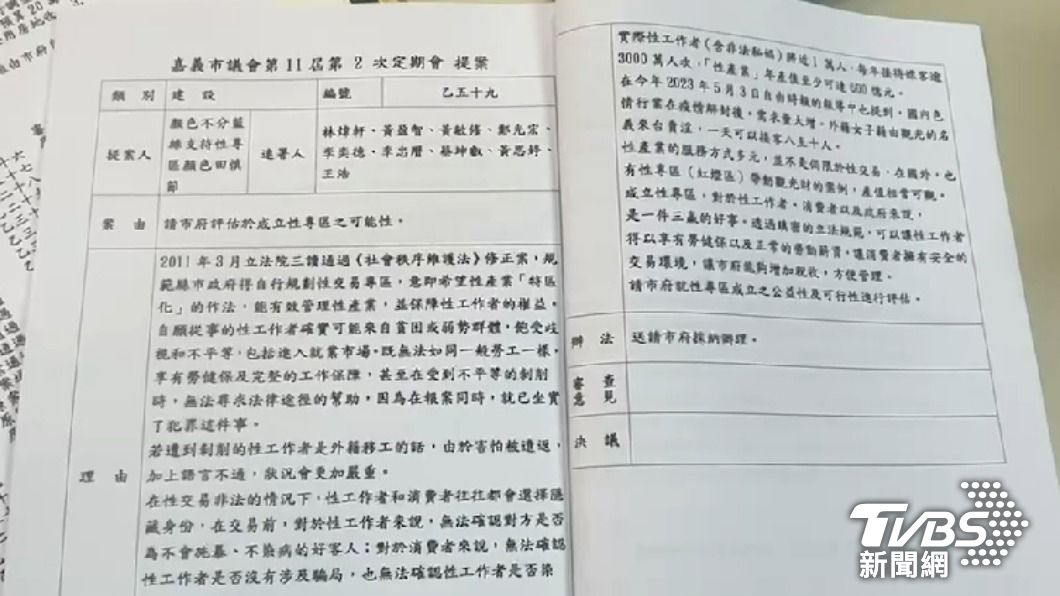 嘉義市議會第11屆第2次定期會 提案
類別 建設 編號 乙五十九
提案人 顏色不分藍綠支持性專區顏色田慎節 連署人 林煒軒、黃盈智、黃敏修、鄭光宏、李奕德、李忠曆、蔡坤叡、黃思婷、王浩
案由 請市府評估於成立性專區之可能性。
理由
2011年3月立法院三讀通過《社會秩序維護法》修正案，規
範縣市政府得自行規劃性交易專區，意即希望性產業「特區
化」的作法，能有效管理性產業，並保障性工作者的權益。
自願從事的性工作者確實可能來自貧困或弱勢群體，飽受歧
視和不平等，包括進入就業市場。既無法如同一般勞工一樣，
享有勞健保及完整的工作保障，甚至在受到不平等的剝削
時，無法尋求法律途徑的幫助，因為在報案同時，就已坐實
了犯罪這件事。
若遭到剝削的性工作者是外籍移工的話，由於害怕被遣返，
加上語言不通，狀況會更加嚴重。
在性交易非法的情況下，性工作者和消費者往往都會選擇隱
藏身份，在交易前，對於性工作者來說，無法確認對方是否
為不會施暴、不染病的好客人；對於消費者來說，無法確認
性工作者是否沒有涉及騙局，也無法確認性工作者是否染
實際性工作者（含非法私娼）將近1萬人，每年接待嫖客逾
3000萬人次，「性產業」年產值至少可達600億元。
在今年2023年5月3日自由時報的報導中也提到，國內色
情行業在疫情解封後，需求量大增。外籍女子藉由觀光的名
義來台賣淫，一天可以接客八至十人。
性產業的服務方式多元，並不是侷限於性交易，在國外，也
有性專區（紅燈區）帶動觀光財的案例，產值相當可觀。
成立性專區，對於性工作者、消費者以及政府來說，
是一件三贏的好事。透過縝密的立法規範，可以讓性工作者
得以享有勞健保以及正常的勞動薪資，讓消費者擁有安全的
交易環境，讓市府能夠增加稅收，方便管理。
請市府就性專區成立之公益性及可行性進行評估。
辦法 送請市府採納辦理。
審查意見
決議
TVBS
新聞網